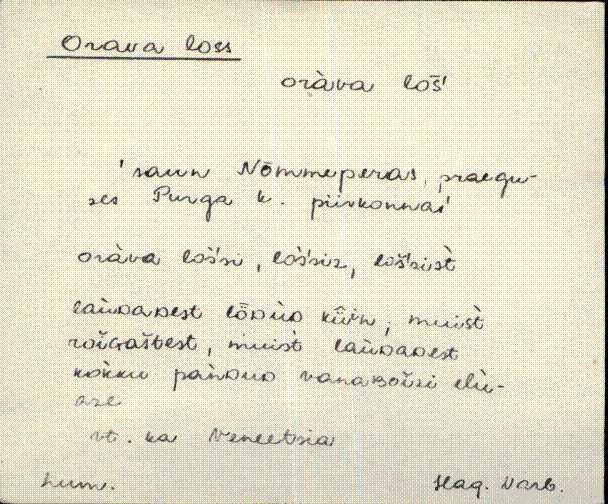 Orava loss
oràva loš́
'saun Nõmmeperas, praegu-
ses Purga k. piirkonnas'
oràva loš́si, loš́siz, loš́sist
laùᴅaᴅest lȫᴅùᴅ kǖ̀n, muist
roiɢaštest, muist laùᴅaᴅest
kòkku pànᴅuᴅ vanaʙoìsi elù-
ase
vt. ka Veneetsia
Lum.
Hag. Varb.